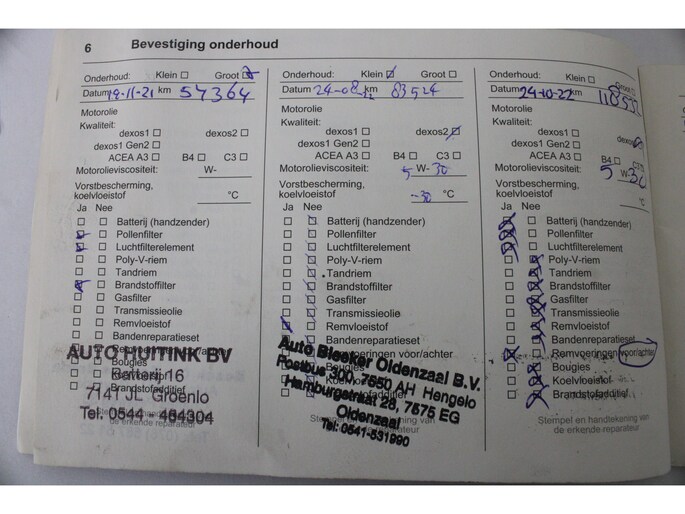 6 Bevestiging onderhoud
Onderhoud: Klein Groot
Datum 19-11-21 km 57364
Motorolie
Kwaliteit:
dexos1 dexos2
dexos1 Gen2
ACEA A3 B4 C3
Motorolieviscositeit: W-
Vorstbescherming,
koelvloeistof °C
Ja Nee
Batterij (handzender)
Pollenfilter
Luchtfilterelement
Poly-V-riem
Tandriem
Brandstoffilter
Gasfilter
Transmissieolie
Remvloeistof
Bandenreparatieset
Bougies
Koelvloeistof
Brandstofadditief
AUTO HUITINK BV
Batterij 16
7141 JL Groenlo
Tel: 0544 - 464304
de erkende reparateur
Onderhoud: Klein Groot
Datum 24-08-22 km 83524
Motorolie
Kwaliteit:
dexos1 dexos2
dexos1 Gen2
ACEA A3 B4 C3
Motorolieviscositeit: 5 W- 30
Vorstbescherming,
koelvloeistof -30 °C
Ja Nee
Batterij (handzender)
Pollenfilter
Luchtfilterelement
Poly-V-riem
Tandriem
Brandstoffilter
Gasfilter
Transmissieolie
Remvloeistof
Bandenreparatieset
Remvoeringen voor/achter
Bougies
Koelvloeistof
Brandstofadditief
Auto Bleeker Oldenzaal B.V.
Postbus 300, 7550 AH Hengelo
Hamburgstraat 28, 7575 EG
Oldenzaal
Tel: 0541-531990
Stempel en handtekening van
de erkende reparateur
Onderhoud: Klein Groot
Datum 24-10-22 km
Motorolie
Kwaliteit:
dexos1 dexos2
dexos1 Gen2
ACEA A3 B4 C3
Motorolieviscositeit: 5 W-30
Vorstbescherming,
koelvloeistof °C
Ja Nee
Batterij (handzender)
Pollenfilter
Luchtfilterelement
Poly-V-riem
Tandriem
Brandstoffilter
Gasfilter
Transmissieolie
Remvloeistof
Bandenreparatieset
Remvoeringen voor/achter
Bougies
Koelvloeistof
Brandstofadditief
Stempel en handtekening van
de erkende reparateur